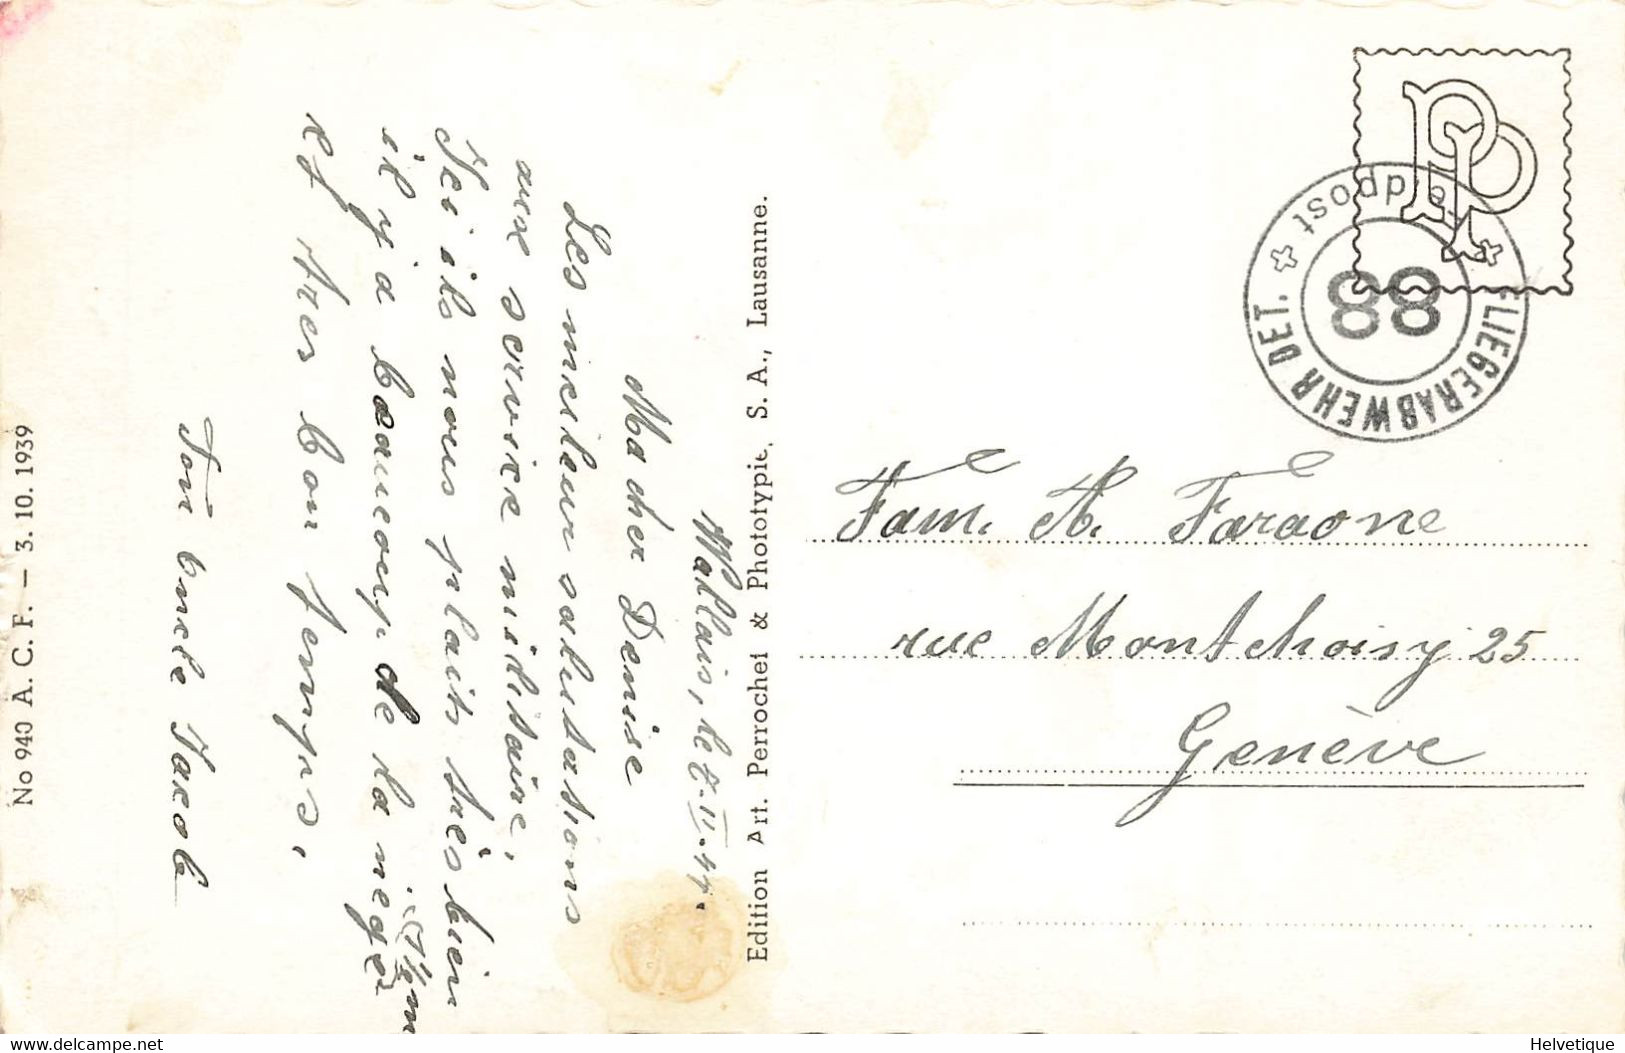 Wallais, le 8.II.44.
Ma cher Denise
Les mieileur salustasions
aux service militaire,
Ici ils nous plait très bien
il y a beaucoup de la neige
1½ m
et tres bon temps,
Ton oncle Jacob
No 940 A. C. F. – 3. 10. 1939
Edition Art. Perrochet & Phototypie, S. A., Lausanne.
PP
+ Feldpost +
FLIEGERABWEHR DET.
88
Fam. A. Faraone
rue Montchoisy 25
Genève
www.delcampe.net
Helvetique